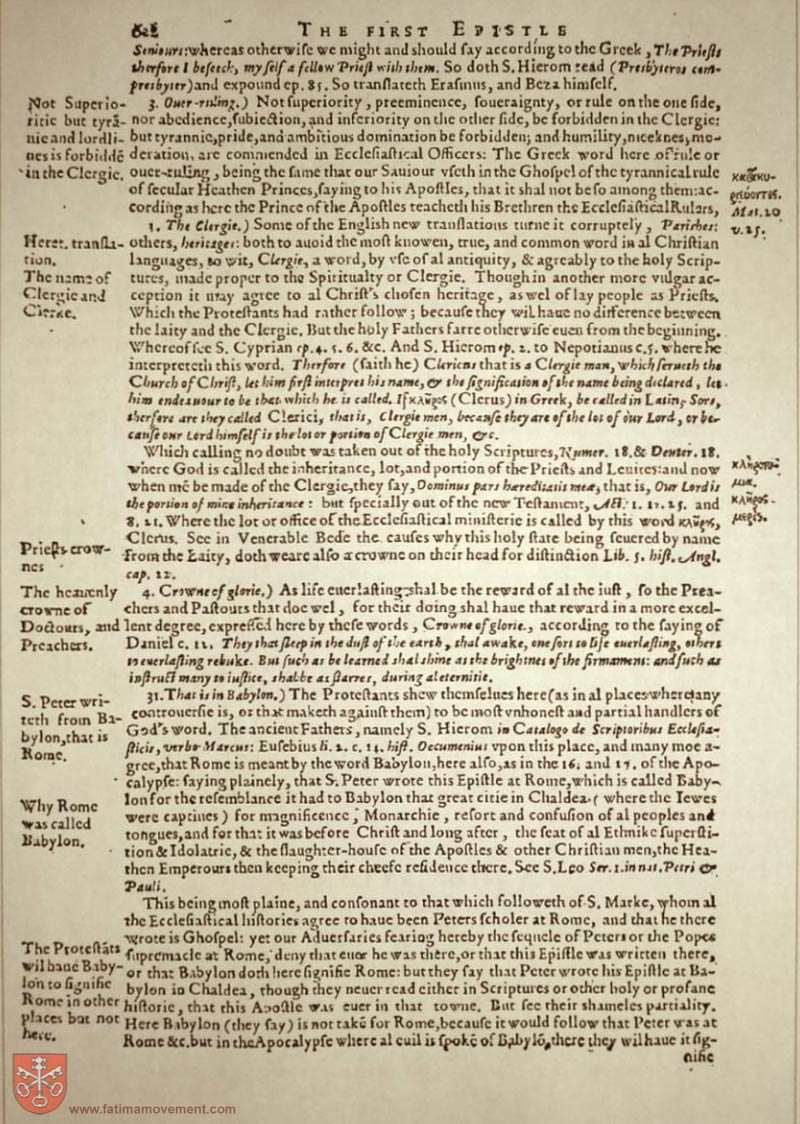 THE FIRST EPISTLE
Seniours: whereas otherwise we might and should say according to the Greek, The Priests
therfore I beseech, my self a fellow Priest with them. So doth S. Hierom read (Presbyteros com-
presbyter) and expound ep. 85. So translateth Erasmus, and Beza himself.
Not Superio-
ritie but tyrã-
nie and lordli-
nes is forbiddẽ
in the Clergie.
3. Ouer-ruling.) Not superiority, preeminence, soueraignty, or rule on the one side,
nor abedience, subiection, and inferiority on the other side, be forbidden in the Clergie:
but tyrannie, pride, and ambitious domination be forbidden; and humility, niceknes, mo-
deration, are commended in Ecclesiastical Officers: The Greek word here of rule or
ouer-ruling, being the same that our Sauiour vseth in the Ghospel of the tyrannical rule
of secular Heathen Princes, saying to his Apostles, that it shal not be so among them: ac-
cording as here the Prince of the Apostles teacheth his Brethren the Ecclesiastical Rulars,
Mat. 20
v. 25.
Heret. transla-
tion.
The name of
Clergie and
Clerke.
3. The Clergie.) Some of the English new translations turne it corruptely, Parishes:
others, heritages: both to auoid the most knowen, true, and common word in al Christian
languages, to wit, Clergie, a word, by vse of al antiquity, & agreably to the holy Scrip-
tures, made proper to the Spiritualty or Clergie. Though in another more vulgar ac-
ception it may agree to al Christ's chosen heritage, as wel of lay people as Priests.
Which the Protestants had rather follow; because they wil haue no difference between
the laity and the Clergie. But the holy Fathers farre otherwise euen from the beginning.
Whereof see S. Cyprian ep. 4. 5. 6. &c. And S. Hierom ep. 2. to Nepotianus c. 5. where he
interpreteth this word. Therfore (saith he) Clericus that is a Clergie man, which serueth the
Church of Christ, let him first interpret his name, & the signification of the name being declared, let
him endeauour to be that which he is called. If κλῆρος (Clerus) in Greek, be called in Latin, Sors,
therfore are they called Clerici, that is, Clergie men, because they are of the lot of our Lord, or be-
cause our Lord himself is the lot or portion of Clergie men, &c.
Which calling no doubt was taken out of the holy Scriptures, Numer. 18. & Deuter. 18.
where God is called the inheritance, lot, and portion of the Priests and Leuites: and now
when mẽ be made of the Clergie, they say, Dominus pars hæreditatis meæ, that is, Our Lord is
the portion of mine inheritance: but specially out of the new Testament, Act. 1. 17. 25. and
8. 21. Where the lot or office of the Ecclesiastical ministerie is called by this word κλῆρος,
Clerus. See in Venerable Bede the causes why this holy state being seuered by name
from the Laity, doth weare also a crowne on their head for distinction Lib. 5. hist. Angl.
cap. 22.
κλῆρος.
μερίς.
Priests crow-
nes
The heauenly
crowne of
Doctours, and
Preachers.
4. Crowne of glorie.) As life euerlasting shal be the reward of al the iust, so the Prea-
chers and Pastours that doe wel, for their doing shal haue that reward in a more excel-
lent degree, expressed here by these words, Crowne of glorie, according to the saying of
Daniel c. 12. They that sleep in the dust of the earth, shal awake, one sort to life euerlasting, others
to euerlasting rebuke. But such as be learned shal shine as the brightnes of the firmament: and such as
instruct many to iustice, shal be as starres, during al eternitie.
S. Peter wri-
teth from Ba-
bylon, that is
Rome.
31. That is in Babylon.) The Protestants shew themselues here (as in al places where any
controuersie is, or that maketh against them) to be most vnhonest and partial handlers of
God's word. The ancient Fathers, namely S. Hierom in Catalogo de Scriptoribus Ecclesia-
sticis, verbo Marcus: Eusebius li. 2. c. 14. hist. Oecumenius vpon this place, and many moe a-
gree, that Rome is meant by the word Babylon, here also, as in the 16. and 17. of the Apo-
calypse: saying plainely, that S. Peter wrote this Epistle at Rome, which is called Baby-
lon for the resemblance it had to Babylon that great citie in Chaldea (where the Iewes
were captiues) for magnificence, Monarchie, resort and confusion of al peoples and
tongues, and for that it was before Christ and long after, the seat of al Ethnike supersti-
tion & Idolatrie, & the slaughter-house of the Apostles & other Christian men, the Hea-
then Emperours then keeping their cheefe residence there. See S. Leo Ser. 1. in nat. Petri &
Pauli.
Why Rome
was called
Babylon.
This being most plaine, and consonant to that which followeth of S. Marke, whom al
the Ecclesiastical histories agree to haue been Peters scholer at Rome, and that he there
wrote is Ghospel: yet our Aduersaries fearing hereby the sequele of Peters or the Popes
supremacie at Rome, deny that euer he was there, or that this Epistle was written there,
or that Babylon doth here signifie Rome: but they say that Peter wrote his Epistle at Ba-
bylon in Chaldea, though they neuer read either in Scriptures or other holy or profane
historie, that this Apostle was euer in that towne. But see their shameles partiality.
Here Babylon (they say) is not takẽ for Rome, because it would follow that Peter was at
Rome &c. but in the Apocalypse where al euil is spokẽ of Babylõ, there they wil haue it sig-
nifie
The Protestãts
wil haue Baby-
lon to signifie
Rome in other
places but not
here.
www.fatimamovement.com